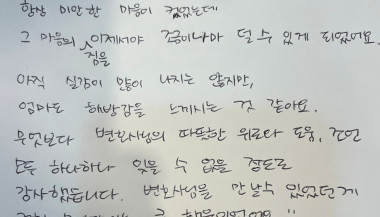 항상 미안한 마음이 컸었는데
그 마음의 짐을 이제서야 조금이나마 덜 수 있게 되었어요.
아직 실감이 많이 나지는 않지만,
엄마도 해방감을 느끼시는 것 같아요.
무엇보다 변호사님의 따뜻한 위로와 도움, 조언
모두 하나하나 잊을 수 없을 정도로
감사했습니다. 변호사님을 만날수 있었던게